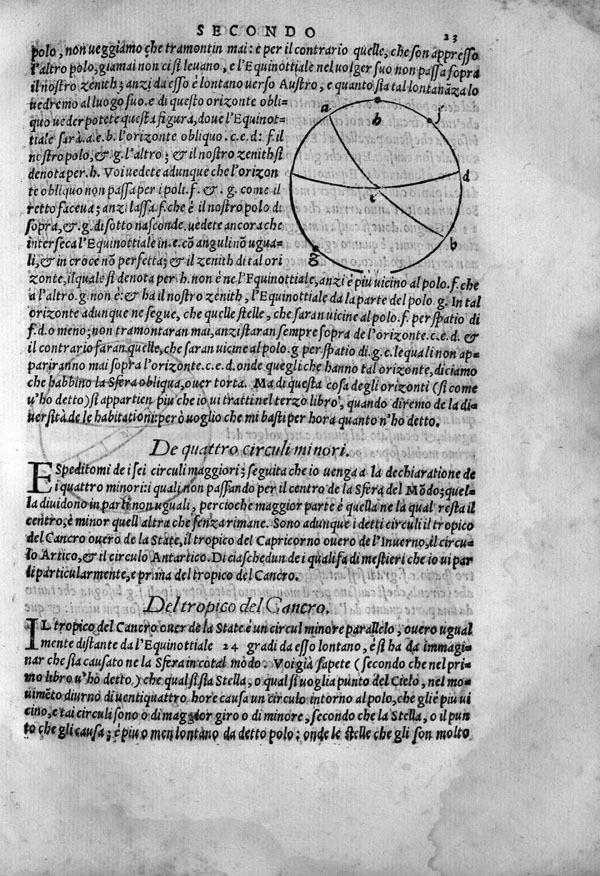 SECONDO 23
polo, non ueggiamo che tramontin mai: e per il contrario quelle, che son appresso
l'altro polo, giamai non ci si leuano, e l'Equinottiale nel uolger suo non passa sopra
il nostro zenith; anzi da esso è lontano uerso Austro, e quanto sia tal lontanāza lo
uedremo al luogo suo. e di questo orizonte obli=
quo ueder potete questa figura, doue l'Equinot=
tiale sarà.a.e.b. l'orizonte obliquo .c.e.d: f.il
nostro polo, & .g.l'altro; & il nostro zenith si
denota per.h. Voi uedete adunque che l'orizon
te obliquo non passa per i poli.f. & .g. come il
retto faceua; anzi lassa.f.che è il nostro polo di
sopra, & .g.di sotto nasconde. uedete ancora che
interseca l'Equinottiale in.e.cō anguli nō ugua=
li, & in croce nō perfetta; & il zenith di tal ori
zonte, il quale si denota per.h.non è ne l'Equinottiale, anzi è piu uicino al polo.f.che
a l'altro.g.non è: & ha il nostro zenith, l'Equinottiale da la parte del polo g. In tal
orizonte adunque ne segue, che quelle stelle, che saran uicine al polo.f. per spatio di
f.d.o meno; non tramontaran mai, anzi staran sempre sopra de l'orizonte.c.e.d. &
il contrario faran quelle, che saran uicine al polo.g per spatio di.g.c.lequali non ap=
pariranno mai sopra l'orizonte.c.e.d. onde quegli che hanno tal orizonte, diciamo
che habbino la Sfera obliqua, ouer torta. Ma di questa cosa de gli orizonti (si come
u'ho detto) si appartien piu che io ui tratti nel terzo libro, quando diremo de la di=
uersità de le habitationi: però uoglio che mi basti per hora quanto n'ho detto.
De quattro circuli minori.
ESpeditomi de i sei circuli maggiori; seguita che io uenga a la dechiaratione de
i quattro minori: i quali non passando per il centro de la Sfera del Mōdo; quel=
la diuidono in parti non uguali, percioche maggior parte è quella ne la qual resta il
centro; è minor quell'altra che senza rimane. Sono adunque i detti circuli il tropico
del Cancro ouero de la State, il tropico del Capricorno ouero de l'Inuerno, il circu=
lo Artico, & il circulo Antartico. Di ciaschedun de i quali fa di mestieri che io ui par
li particularmente, e prima del tropico del Cancro.
Del tropico del Cancro.
IL tropico del Cancro ouer de la State è un circul minore parallelo, ouero ugual
mente distante da l'Equinottiale 24 gradi da esso lontano, e si ha da immagi=
nar che sia causato ne la Sfera in cotal modo. Voi già sapete (secondo che nel pri=
mo libro u'ho detto) che qual si sia Stella, o qual si uoglia punto del Cielo, nel mo=
uimēto diurno di uentiquattro hore causa un circulo intorno al polo, che gli è piu ui
cino, e tai circuli sono o di maggior giro o di minore, secondo che la Stella, o il pun
to che gli causa; è piu o men lontano da detto polo; onde le stelle che gli son molto
a
h
f
d
e
b
g